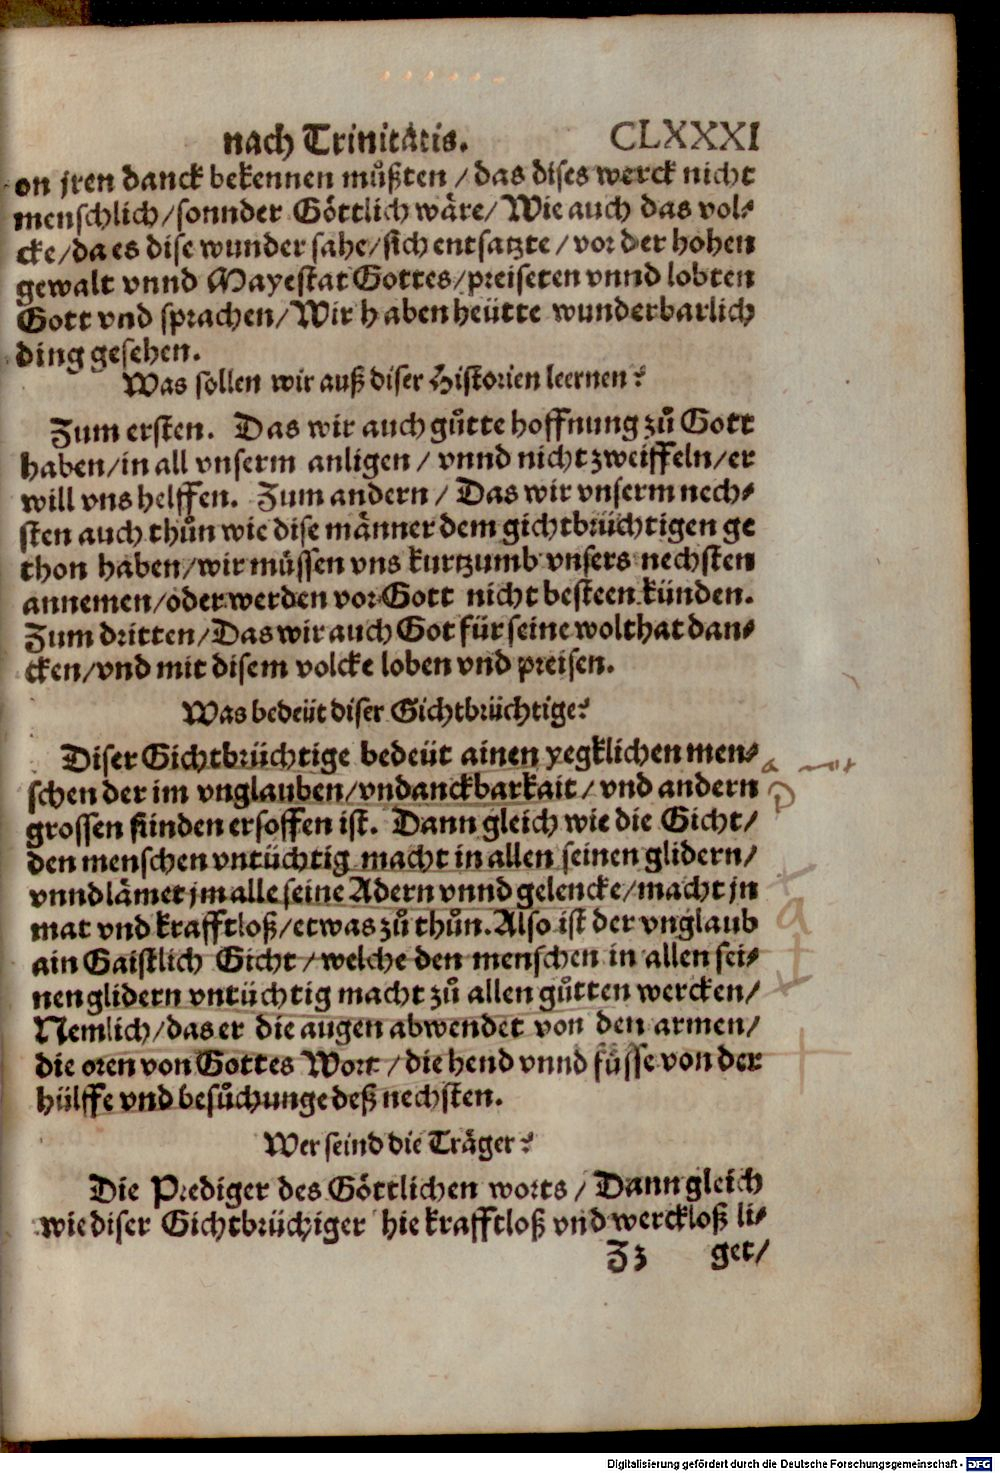 nach Trinitatis. CLXXXI
on jren danck bekennen můßten / das dises werck nicht
menschlich/sonnder Göttlich wäre/ Wie auch das vol⸗
cke/da es dise wunder sahe/sich entsatzte / vor der hohen
gewalt vnnd Mayestat Gottes/preiseten vnnd lobten
Gott vnd sprachen/Wir haben heütte wunderbarlich
ding gesehen.
Was sollen wir auß diser Historien leernen?
Zum ersten. Das wir auch gůtte hoffnung zů Gott
haben/in all vnserm anligen / vnnd nicht zweiffeln/er
will vns helffen. Zum andern / Das wir vnserm nech⸗
sten auch thůn wie dise männer dem gichtbrüchtigen ge
thon haben/wir müssen vns kurtzumb vnsers nechsten
annemen/oder werden vor Gott nicht besteen künden.
Zum dritten/Das wir auch Got für seine wolthat dan⸗
cken/vnd mit disem volcke loben vnd preisen.
Was bedeüt diser Gichtbrüchtige?
Diser Gichtbrüchtige bedeüt ainen yegklichen men⸗
schen der im vnglauben/vndanckbarkait/ vnd andern
grossen sünden ersoffen ist. Dann gleich wie die Gicht/
den menschen vntüchtig macht in allen seinen glidern/
vnnd lämet jm alle seine Adern vnnd gelencke/macht jn
mat vnd krafftloß/etwas zů thůn. Also ist der vnglaub
ain Gaistlich Gicht / welche den menschen in allen sei⸗
nen glidern vntüchtig macht zů allen gůtten wercken/
Nemlich/das er die augen abwendet von den armen/
die oren von Gottes Wort / die hend vnnd füsse von der
hülffe vnd besůchunge deß nechsten.
Wer seind die Träger?
Die Prediger des Göttlichen worts / Dann gleich
wie diser Gichtbrüchiger hie krafftloß vnd werckloß li⸗
Zz get/
Digitalisierung gefördert durch die Deutsche Forschungsgemeinschaft - DFG